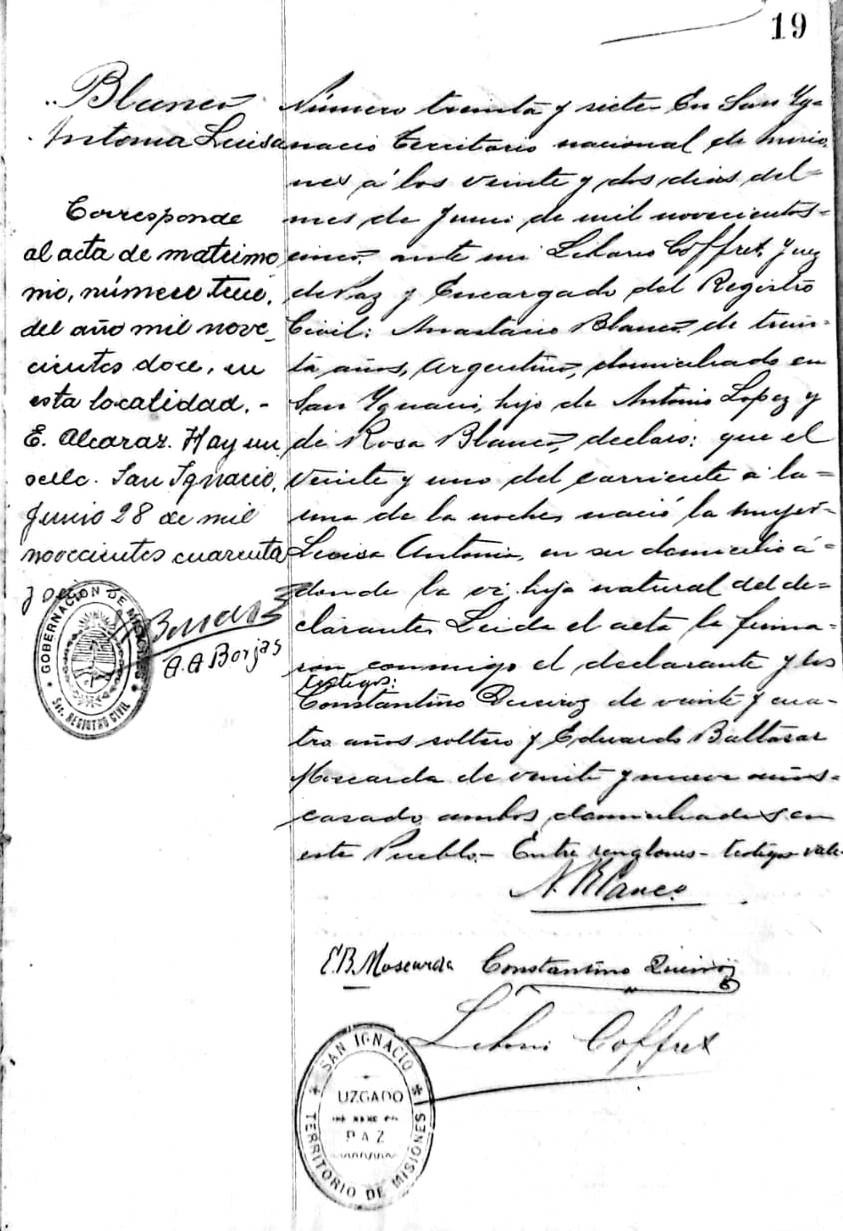 19
Blanco
Antonia Luisa
Corresponde
al acta de matrimo
nio, número trece,
del año mil nove-
cientos doce, en
esta localidad. -
E. Alcaraz. Hay un
sello. San Ignacio,
Junio 28 de mil
novecientos cuarenta
A. A Borjas
GOBERNACION DE MISIONES
REGISTRO CIVIL
Número treinta y siete En San Yg-
nacio Territorio nacional de Misio
nes á los veinte y dos dias del
mes de Junio de mil novecientos
cinco, ante mi Coffret, Juez
de Paz y Encargado del Registro
Civil: Anastacio Blanco, de trein-
ta años, Argentino, domiciliado en
San Ygnacio, hijo de Antonio Lopez y
de Rosa Blanco, declaró: que el
veinte y uno del corriente á la
una de la noche nació la mujer
Luisa Antonia, en su domicilio á
donde la vi, hija natural del de-
clarante. Leida el acta la firma-
ron conmigo el declarante y los
testigos:
Constantino Queiroz de veinte y cua-
tro años soltero y Eduardo Baltasar
Moscarda de veinte y nueve años
casado ambos domiciliados en
este Pueblo - Entre renglones - testigos - vale
A. Blanco
E. B. Moscarda Constantino Queiroz
Coffret
SAN IGNACIO
JUZGADO
DE
PAZ
TERRITORIO DE MISIONES